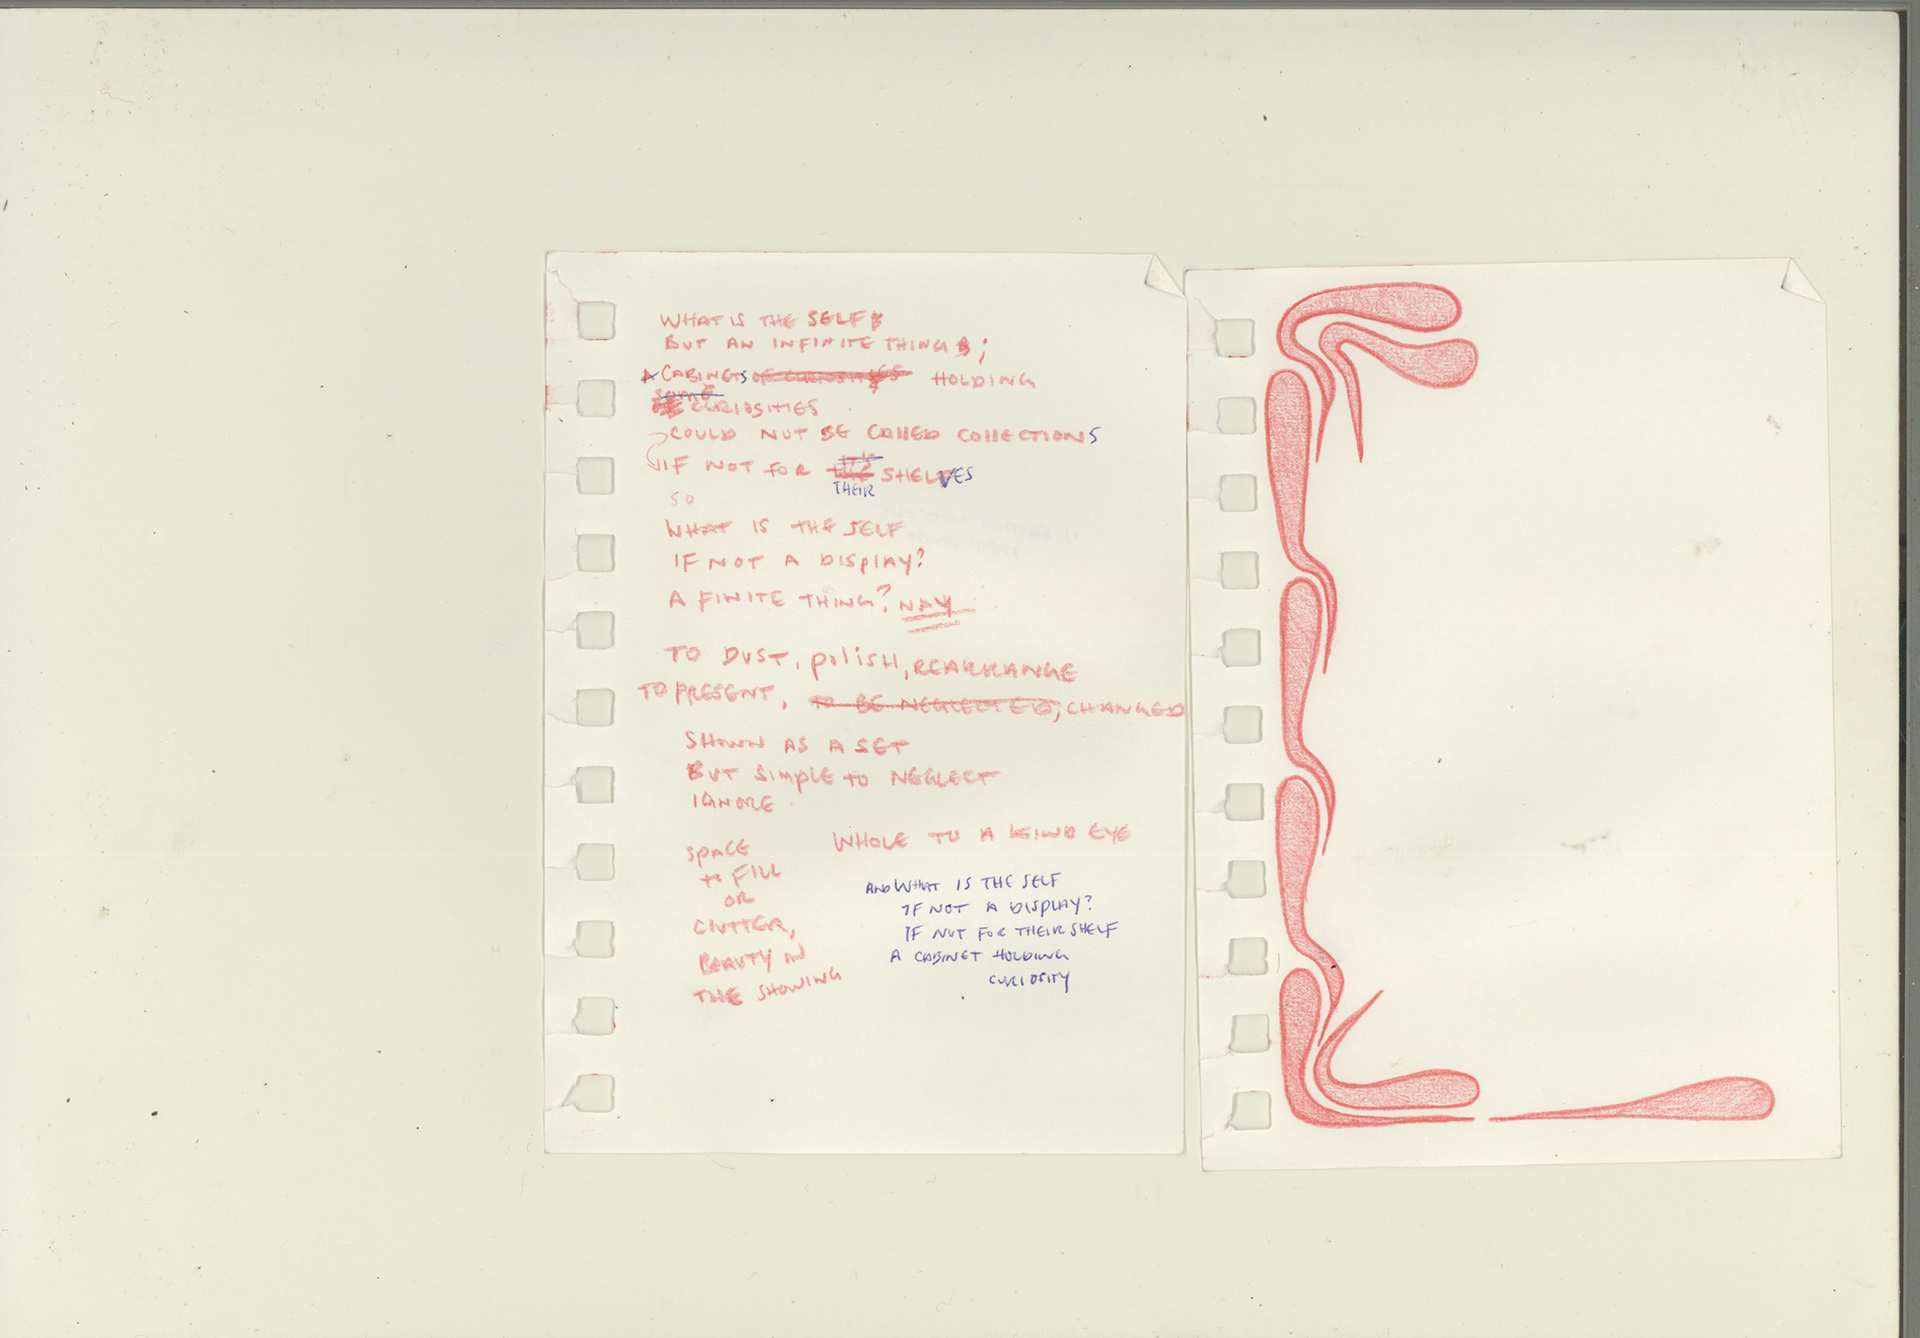 WHAT IS THE SELF
BUT AN INFINITE THING;
A CABINETS OF CURIOSITIES HOLDING
SOME
CURIOSITIES
COULD NOT BE CALLED COLLECTIONS
IF NOT FOR THEIR SHELVES
SO
WHAT IS THE SELF
IF NOT A DISPLAY?
A FINITE THING? NAY
TO DUST, POLISH, REARRANGE
TO PRESENT, TO BE NEGLECTED, CHANGED
SHOWN AS A SET
BUT SIMPLE TO NEGLECT
IGNORE
WHOLE TO A KIND EYE
SPACE
TO FILL
OR
CLUTTER,
BEAUTY IN
THE SHOWING
AND WHAT IS THE SELF
IF NOT A DISPLAY?
IF NOT FOR THEIR SHELF
A CABINET HOLDING
CURIOSITY